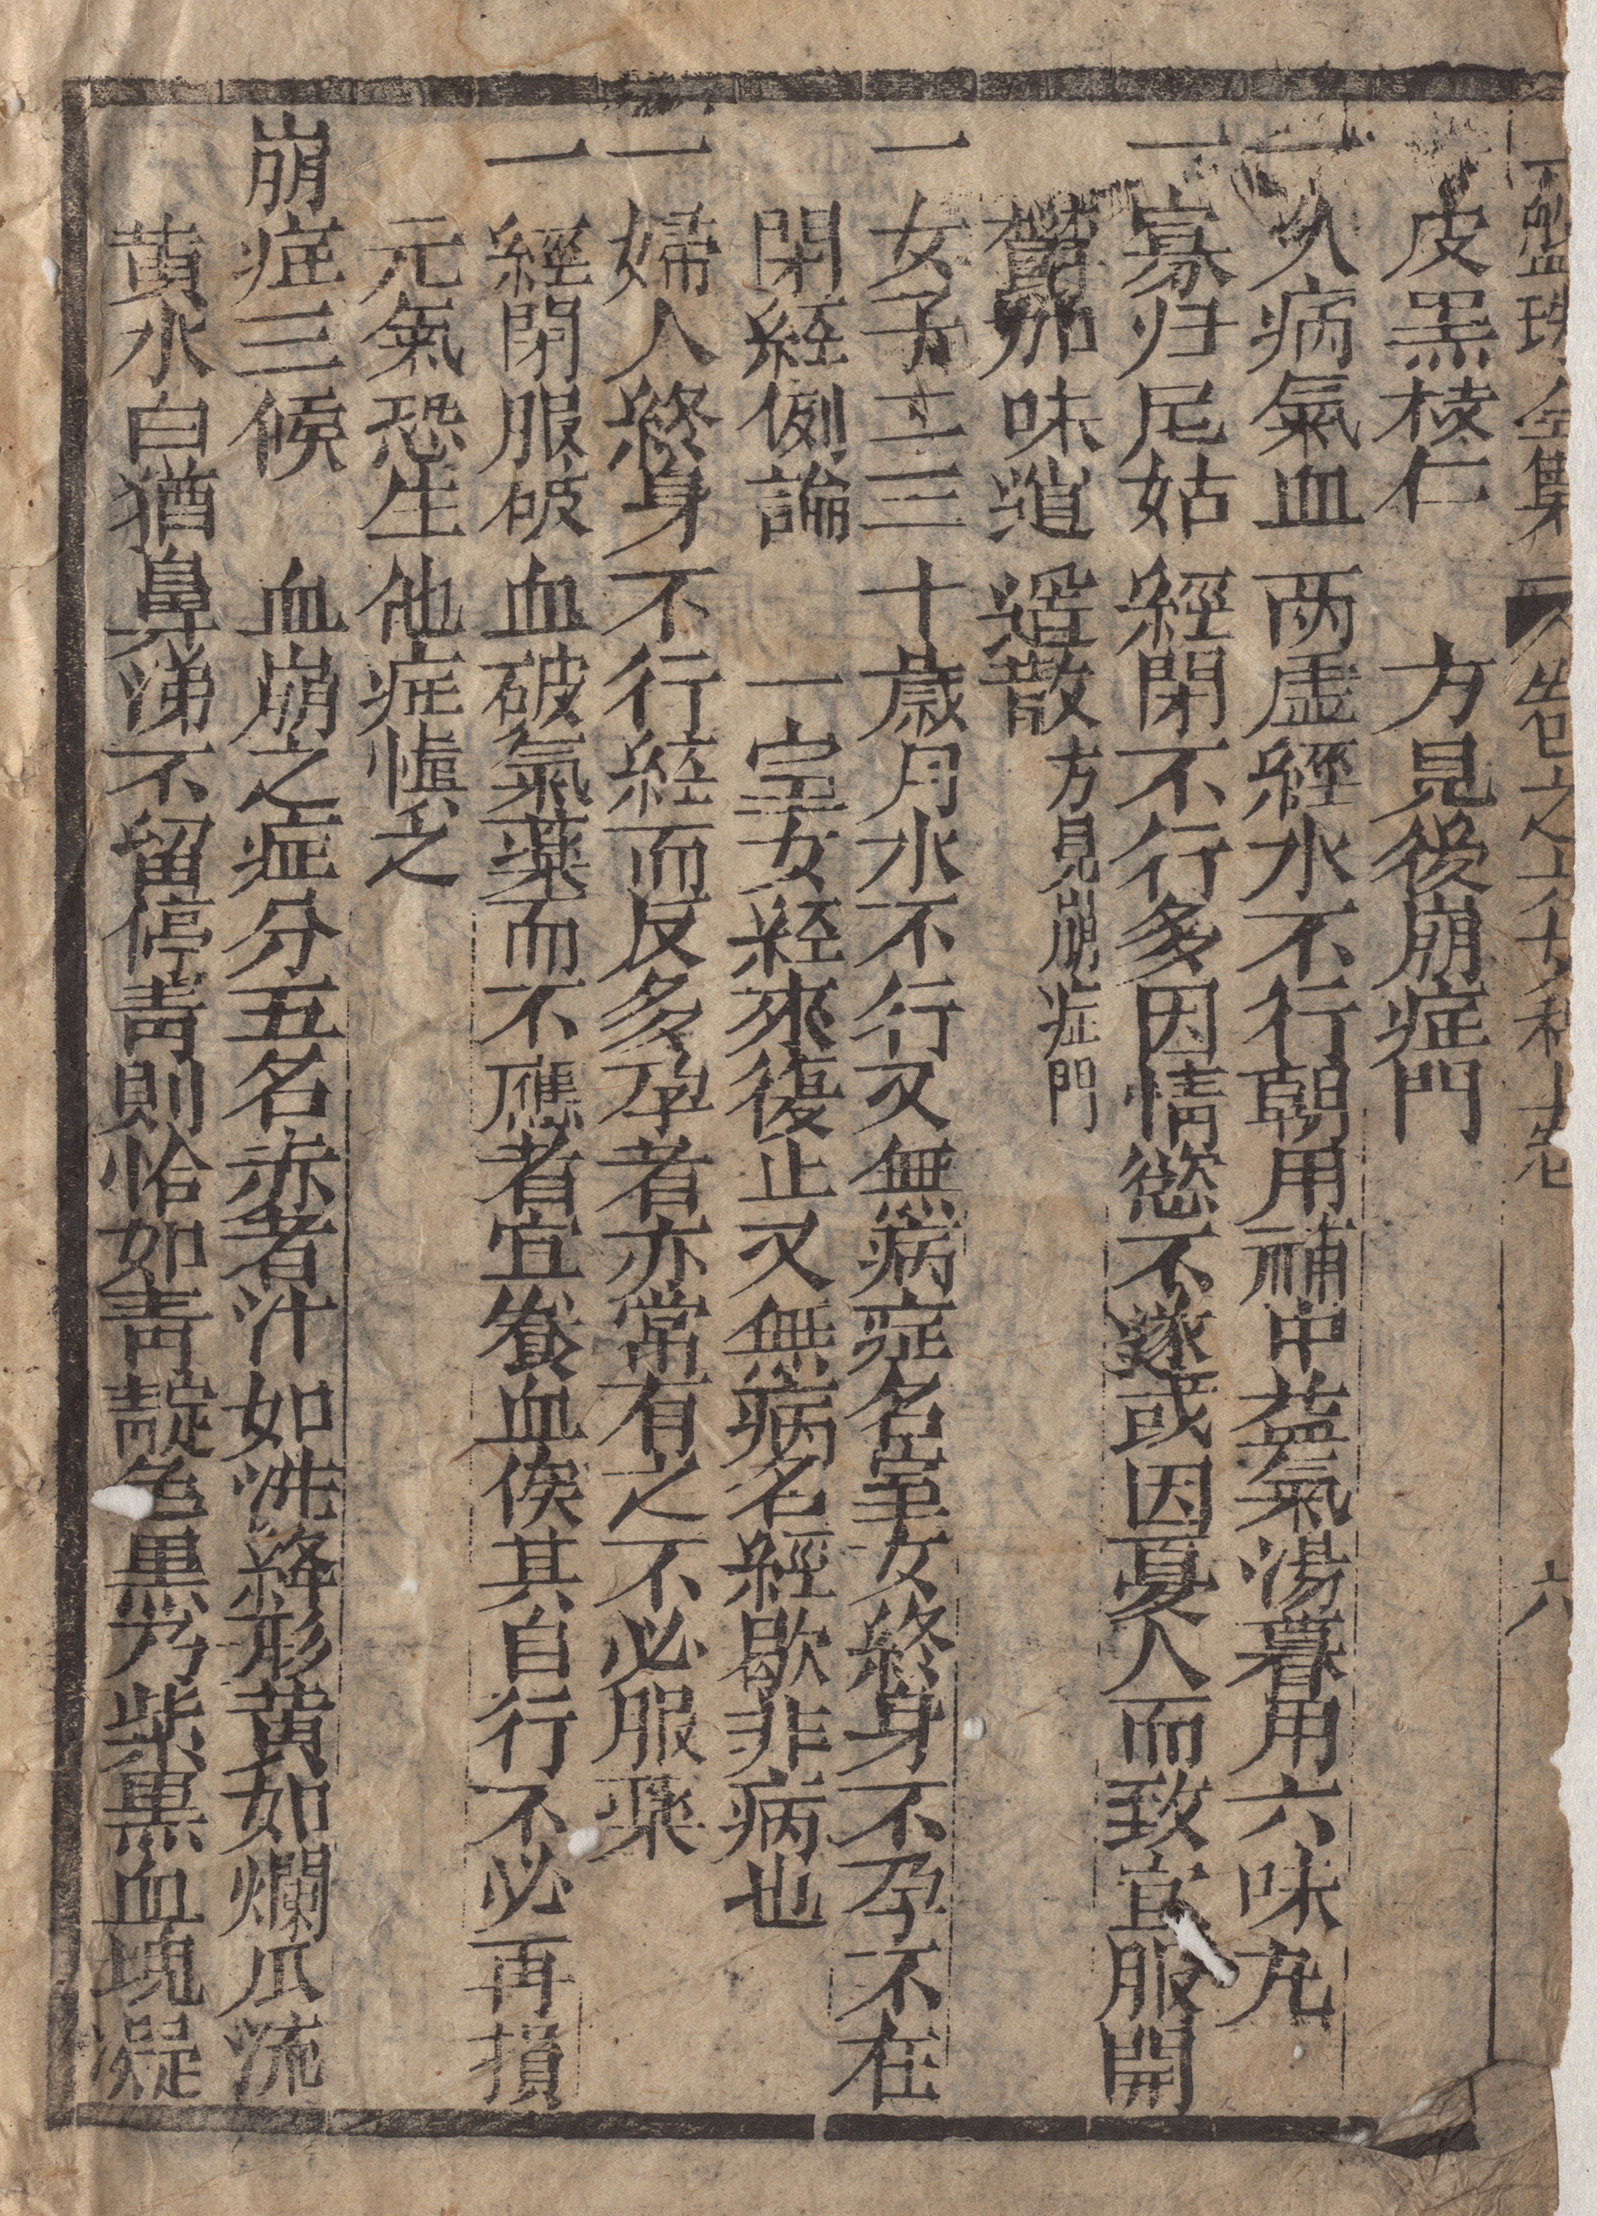 皮黑棱仁　方見後崩症門
一久病氣血兩虛經水不行朝用補中益氣湯暮用六味丸
一寡归尼姑經閉不行多因情慾不遂或因憂人而致宜服開
欝加味逍遥散方見崩症門
一女子二三十歲月水不行又無病症名室女終身不孕不在
閉經例論　一室女經來復止又無病名經歇非病也
一婦人終身不行經而反多孕者亦常有之不必服藥
一經閉服破血破氣藥而不應者宜養血俟其自行不必再損
元氣恐生他症慎之
崩症三候　血崩之症分五名赤者汁如洪絳形黄如爛瓜流
黄水白猶鼻涕不留停青則恰如青靛色黑乃柴黑血塊凝
六